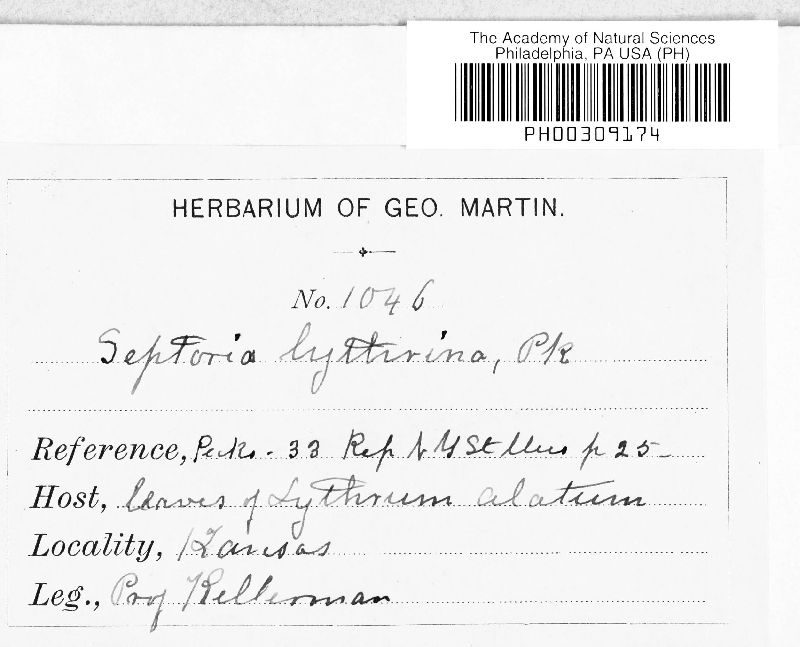 The Academy of Natural Sciences
Philadelphia, PA USA (PH)
PH00309174
HERBARIUM OF GEO. MARTIN.
No. 1046
Septoria lythrina, Pk
Reference, Pecks. 33 Rep N Y St Mus p 25
Host, leaves of Lythrum alatum
Locality, Kansas
Leg., Prof Kellerman